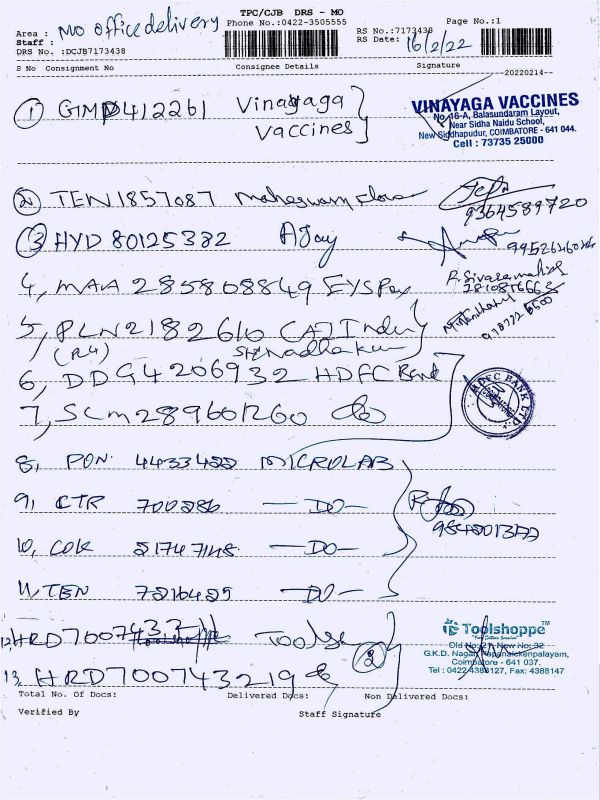 TPC/CJB DRS - MO
Area : MO office delivery Phone No.:0422-3505555 RS No.:7173438 Page No.:1
Staff : RS Date: 16/2/22
DRS No. :DCJB7173438
S No Consignment No Consignee Details Signature
20220214
1 GIMP412261 Vinayaga Vaccines
VINAYAGA VACCINES
No. 16-A, Balasundaram Layout,
Near Sidha Naidu School,
New Siddhapudur, COIMBATORE - 641 044.
Cell : 73735 25000
2 TEN1857087
9364589720
3 HYD 80125382 AJay
4, MAA 285808849
5, PLN2182610
(R4)
6, DDG4206932 HDFC Bank
HDFC BANK LTD
7, SCM289601260 do
8, PON 4433422 MICROLAB
9, CTR 700286 — DO —
10, COK 21747148 — DO —
11, TEN 7216425 — DO —
12. HRD7007433
Toolshoppe
Old No: 21 New No: 32
G.K.D. Nagar, Pappanaickenpalayam,
Coimbatore - 641 037.
Tel : 0422 4388127, Fax: 4388147
13. HRD700743219 do
Total No. Of Docs: Delivered Docs: Non Delivered Docs:
Verified By Staff Signature